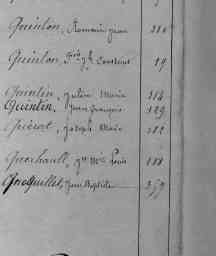 Quinton, Romain Jean 210
Quinton, Frois Jh Constant 19
Quintin, Julien Marie 118
Quintin, Jean François 129
Quérert, Joseph Marie 182
Querhault, Jn Mie Louis 188
Quoquillet, Jean Baptiste 259